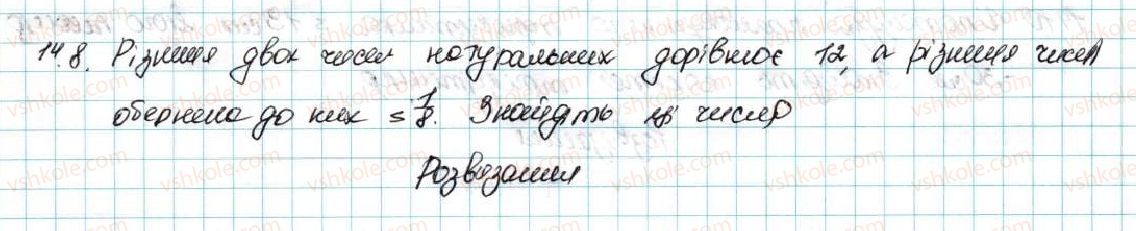 14.8. Різниця двох чисел натуральних дорівнює 12, а різниця чисел
обернена до них = 1/8. Знайдіть ці числа
Розв'язання